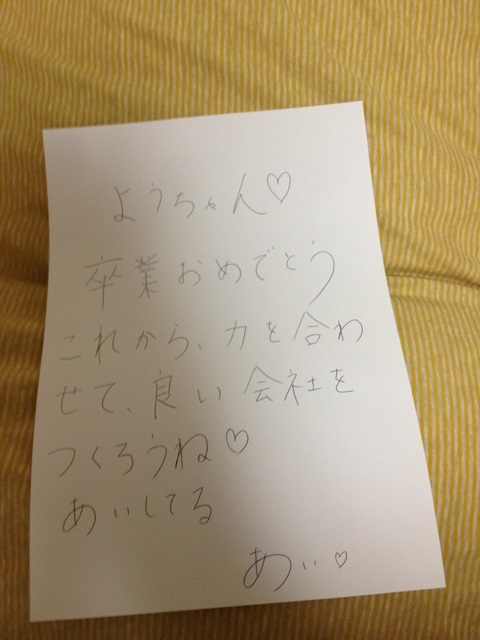 ようちゃん♡
卒業おめでとう
これから、力を合わ
せて、良い会社を
つくろうね♡
あいしてる
あい♡